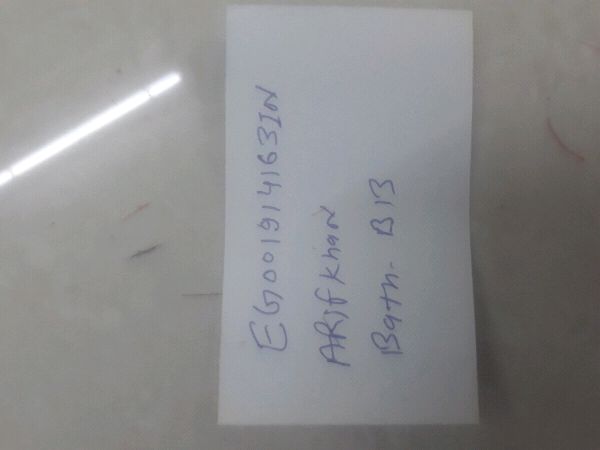 EG001914163IN
ARif Khan
Bath- B13